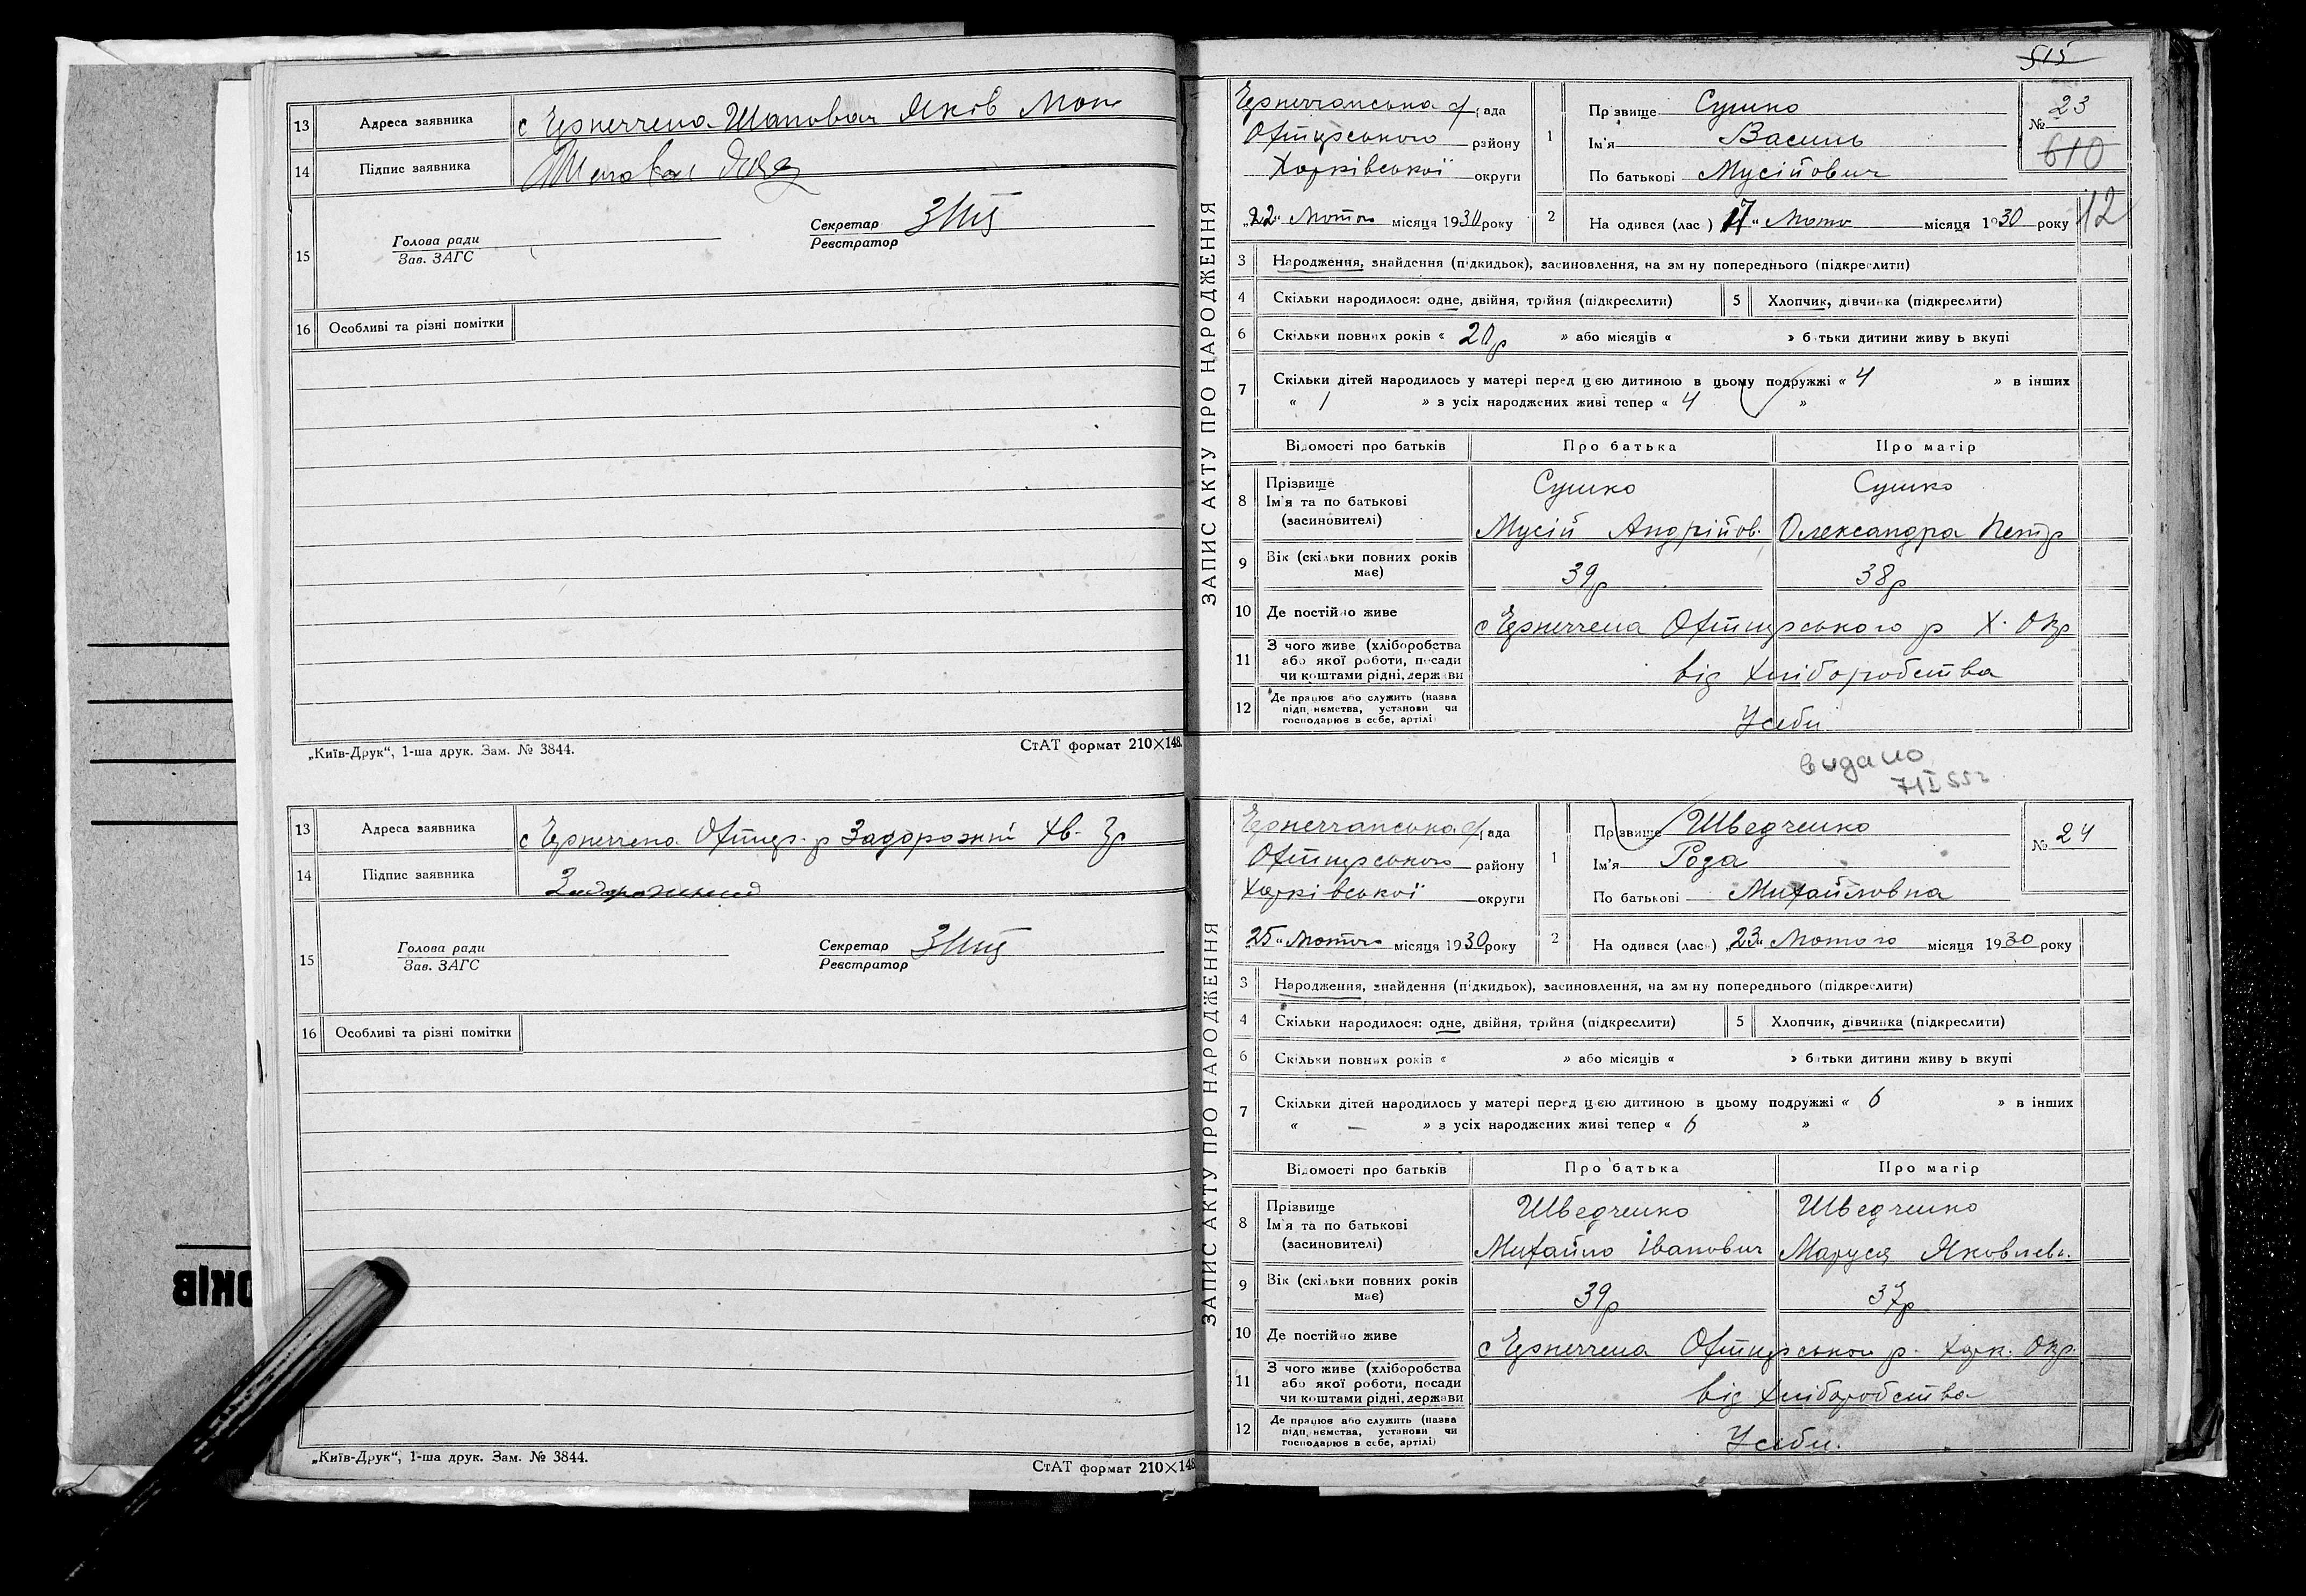 13 Адреса заявника с Яр
14 Підпис заявника
15 Голова ради
Зав. ЗАГС
Секретар
Реєстратор
16 Особливі та різні помітки
„Київ-Друк“, 1-ша друк. Зам. № 3844.
СтАТ формат 210×148.
13 Адреса заявника с
14 Підпис заявника
15 Голова ради
Зав. ЗАГС
Секретар
Реєстратор
16 Особливі та різні помітки
„Київ-Друк“, 1-ша друк. Зам. № 3844.
СтАТ формат 210×148
ОКІВ
515
ЗАПИС АКТУ ПРО НАРОДЖЕННЯ
рада
району
Харківської округи
„22“ Лютого місяця 1930 року
1 Прізвище Сушко
Ім'я Василь
По батькові Мусійович
№ 23
610
12
2 Народився (лась) „17“ місяця 1930 року
3 Народження, знайдення (підкидьок), засиновлення, на зміну попереднього (підкреслити)
4 Скільки народилося: одне, двійня, трійня (підкреслити) 5 Хлопчик, дівчинка (підкреслити)
6 Скільки повних років « 20р » або місяців « » батьки дитини живуть вкупі
7 Скільки дітей народилось у матері перед цією дитиною в цьому подружжі « 4 » в інших
« 1 » з усіх народжених живі тепер « 4 »
Відомості про батьків Про батька Про матір
8 Прізвище Сушко Сушко
Ім'я та по батькові
(засиновителі) Мусій Андрійов. Олександра Петр
9 Вік (скільки повних років має) 39р 38р
10 Де постійно живе с р Х. Окр
11 З чого живе (хліборобства
або якої роботи, посади
чи коштами рідні, держави від Хліборобства
12 Де працює або служить (назва
підприємства, установи чи
господарює в себе, артілі) У себи
видано
7/I 55г
ЗАПИС АКТУ ПРО НАРОДЖЕННЯ
рада
району
Харківської округи
„25“ Лютого місяця 1930 року
1 Прізвище Шведченко
Ім'я Рода
По батькові Михайловна
№ 24
2 Народився (лась) „23“ Лютого місяця 1930 року
3 Народження, знайдення (підкидьок), засиновлення, на зміну попереднього (підкреслити)
4 Скільки народилося: одне, двійня, трійня (підкреслити) 5 Хлопчик, дівчинка (підкреслити)
6 Скільки повних років « » або місяців « » батьки дитини живуть вкупі
7 Скільки дітей народилось у матері перед цією дитиною в цьому подружжі « 6 » в інших
« — » з усіх народжених живі тепер « 6 »
Відомості про батьків Про батька Про матір
8 Прізвище Шведченко Шведченко
Ім'я та по батькові
(засиновителі) Михайло Іванович Маруся Яковлев.
9 Вік (скільки повних років має) 39р 37р
10 Де постійно живе с р. Харк. Окр.
11 З чого живе (хліборобства
або якої роботи, посади
чи коштами рідні, держави від Хліборобства
12 Де працює або служить (назва
підприємства, установи чи
господарює в себе, артілі) У себи.